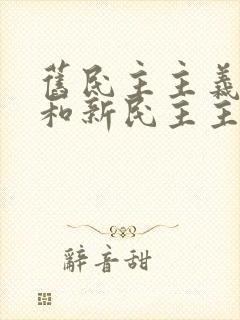 舊民主主義
和新民主主
辭音甜